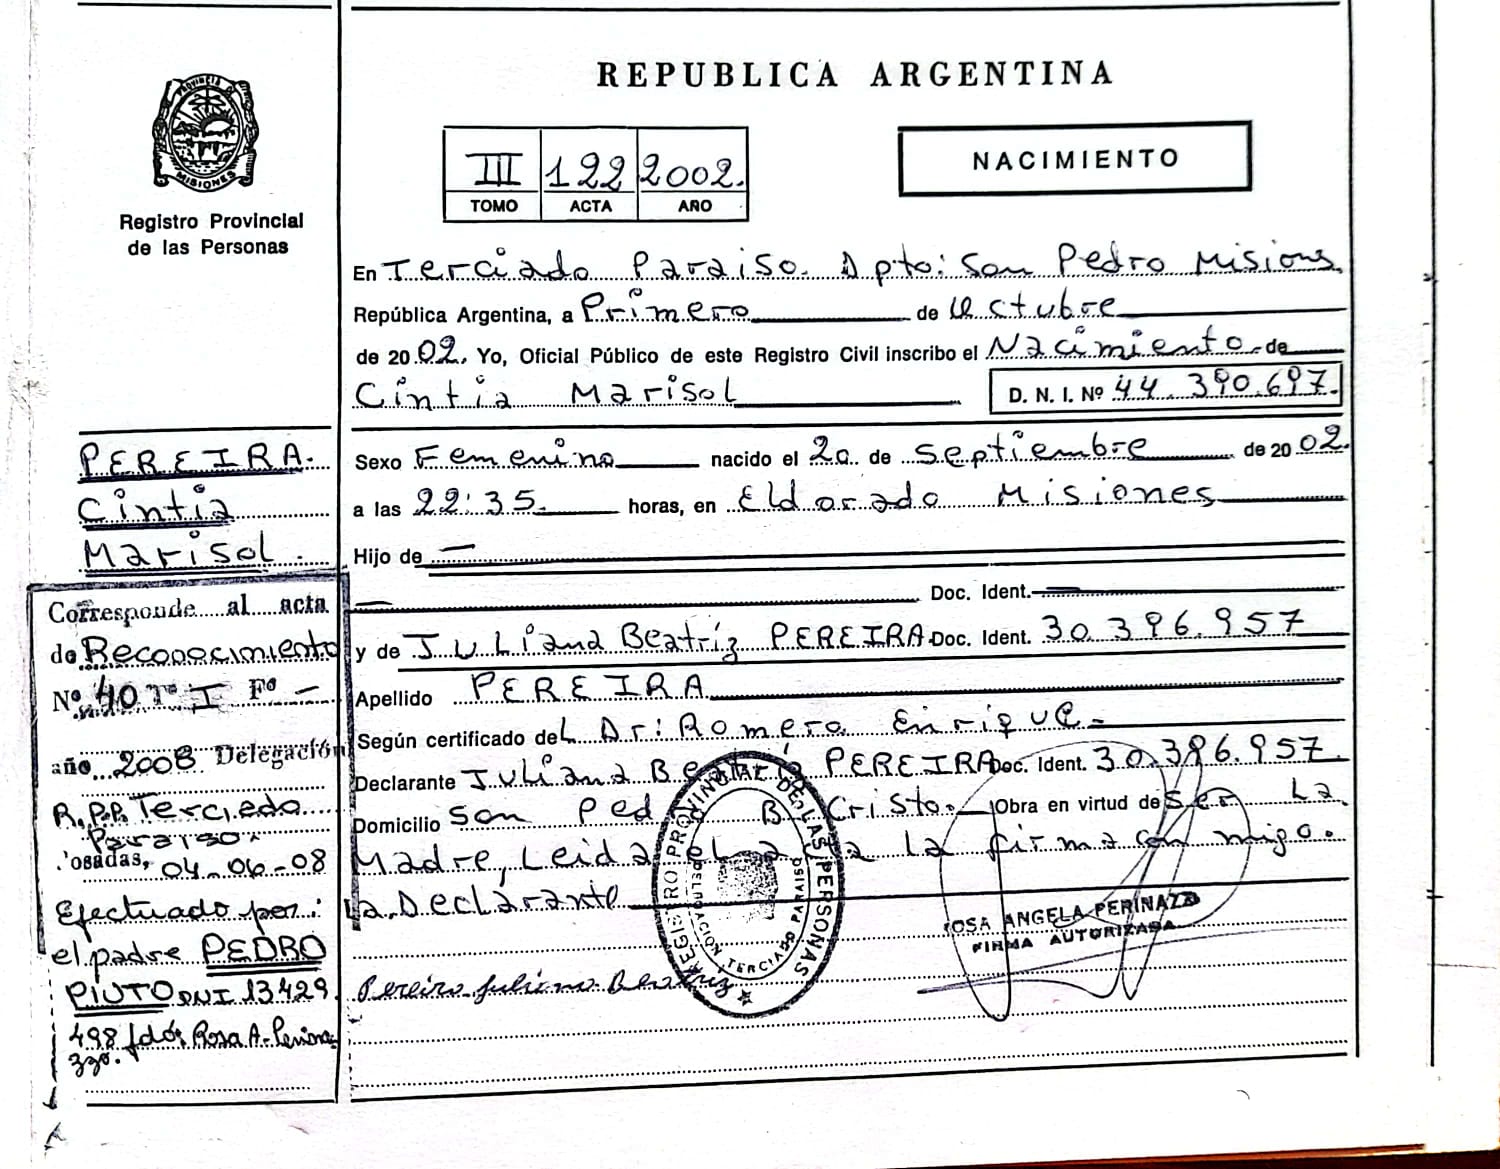 REPUBLICA ARGENTINA
PROVINCIA DE
MISIONES
Registro Provincial
de las Personas
III 122 2002.
TOMO ACTA AÑO
NACIMIENTO
En Terciado Paraiso. Dpto: San Pedro Misions.
República Argentina, a Primero de Octubre
de 2002. Yo, Oficial Público de este Registro Civil inscribo el Nacimiento de
Cintia Marisol D. N. I. Nº 44.390.697.
Sexo Femenino nacido el 20 de Septiembre de 2002.
a las 22:35. horas, en Eldorado Misiones
Hijo de —
— Doc. Ident. —
y de Juliana Beatriz PEREIRA Doc. Ident. 30.396.957
Apellido PEREIRA
Según certificado del Dr: Romero Enrique.-
Declarante Juliana Beatriz PEREIRA Doc. Ident. 30.396.957.
Domicilio San Ped B Cristo. Obra en virtud de ser La
Madre, Leida el a la firma conmigo.
La Declarante
Pereira Juliana Beatriz
REGISTRO PROVINCIAL DE LAS PERSONAS
DELEGACION TERCIADO PARAISO
OSA ANGELA PERINAZZO
FIRMA AUTORIZADA
PEREIRA.
Cintia
Marisol.
Corresponde al acta
de Reconocimiento
Nº 40 Tº I Fº —
año 2008 Delegación
R.P.P. Terciado
Paraiso.
osadas, 04-06-08
Efectuado por:
el padre PEDRO
PIUTO DNI 13429
498 fdo: Rosa A. Perina-
zzo.